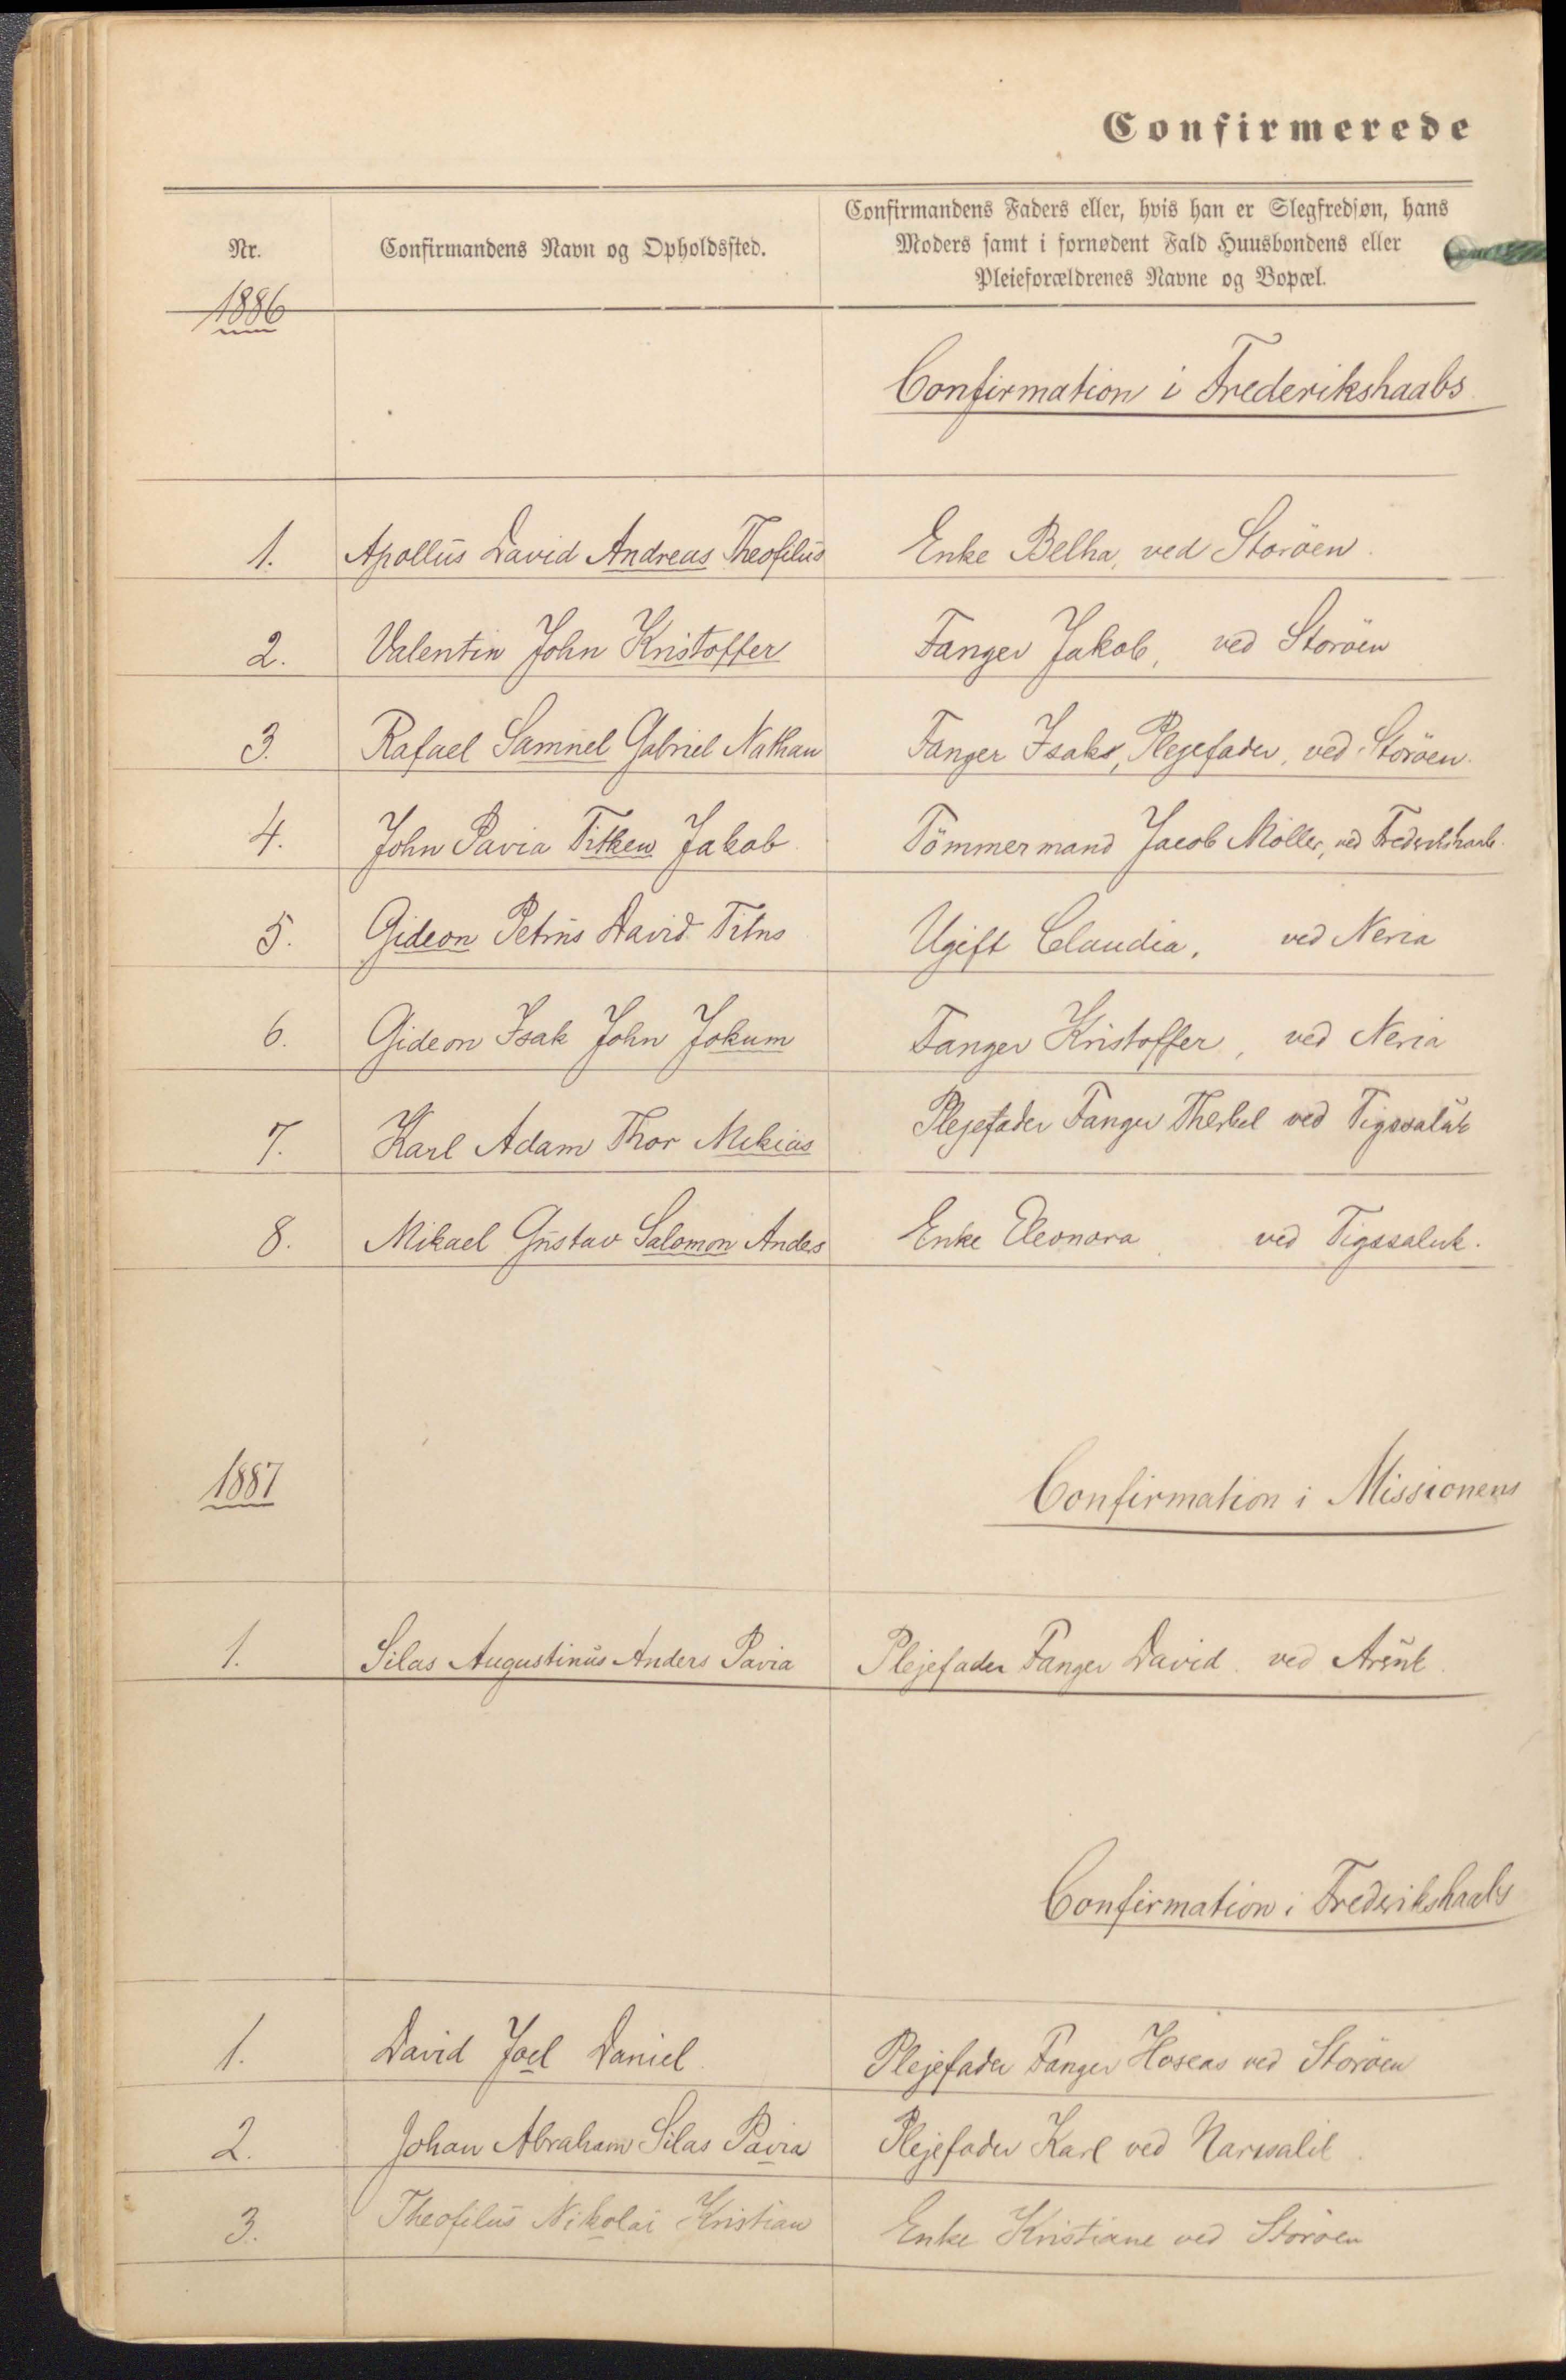 Confirmerede
Nr.
Confirmandens Navn og Opholdssted.
Confirmandens Faders eller, hvis han er Slegfredsøn, hans
Moders samt i fornødent Fald Huusbondens eller
Pleieforældrenes Navne og Bopæl.
1886
Confirmation i Frederikshaabs
1. Apollus David Andreas Theofilus Enke Belha, ved Storöen.
2. Valentin John Kristoffer Fanger Jakob, ved Storöen
3. Rafael Samuel Gabriel Nathan Fanger Isaks, Plejefader, ved Storöen.
4. John Pavia Titken Jakob Tömmermand Jacob Möller, ved Frederikshaab.
5. Gideon Petrus David Titus Ugift Claudia, ved Neria
6. Gideon Isak John Jokum Fanger Kristoffer, ved Neria
7. Karl Adam Thor Mekias Plejefader Fanger Therkel ved Tigssaluk
8. Mikael Gustav Salomon Andes Enke Eleonora ved Tigssaluk.
1887
Confirmation i Missionens
1. Silas Augustinus Anders Pavia Plejefader Fanger David ved Arsuk.
Confirmation i Frederikshaabs
1. David Joel Daniel. Plejefader Fanger Hoseas ved Storöen
2. Johan Abraham Silas Pavia Plejefader Karl ved Narssalik.
3. Theofilus Nikolai Kristian Enke Kristiane ved Storöen